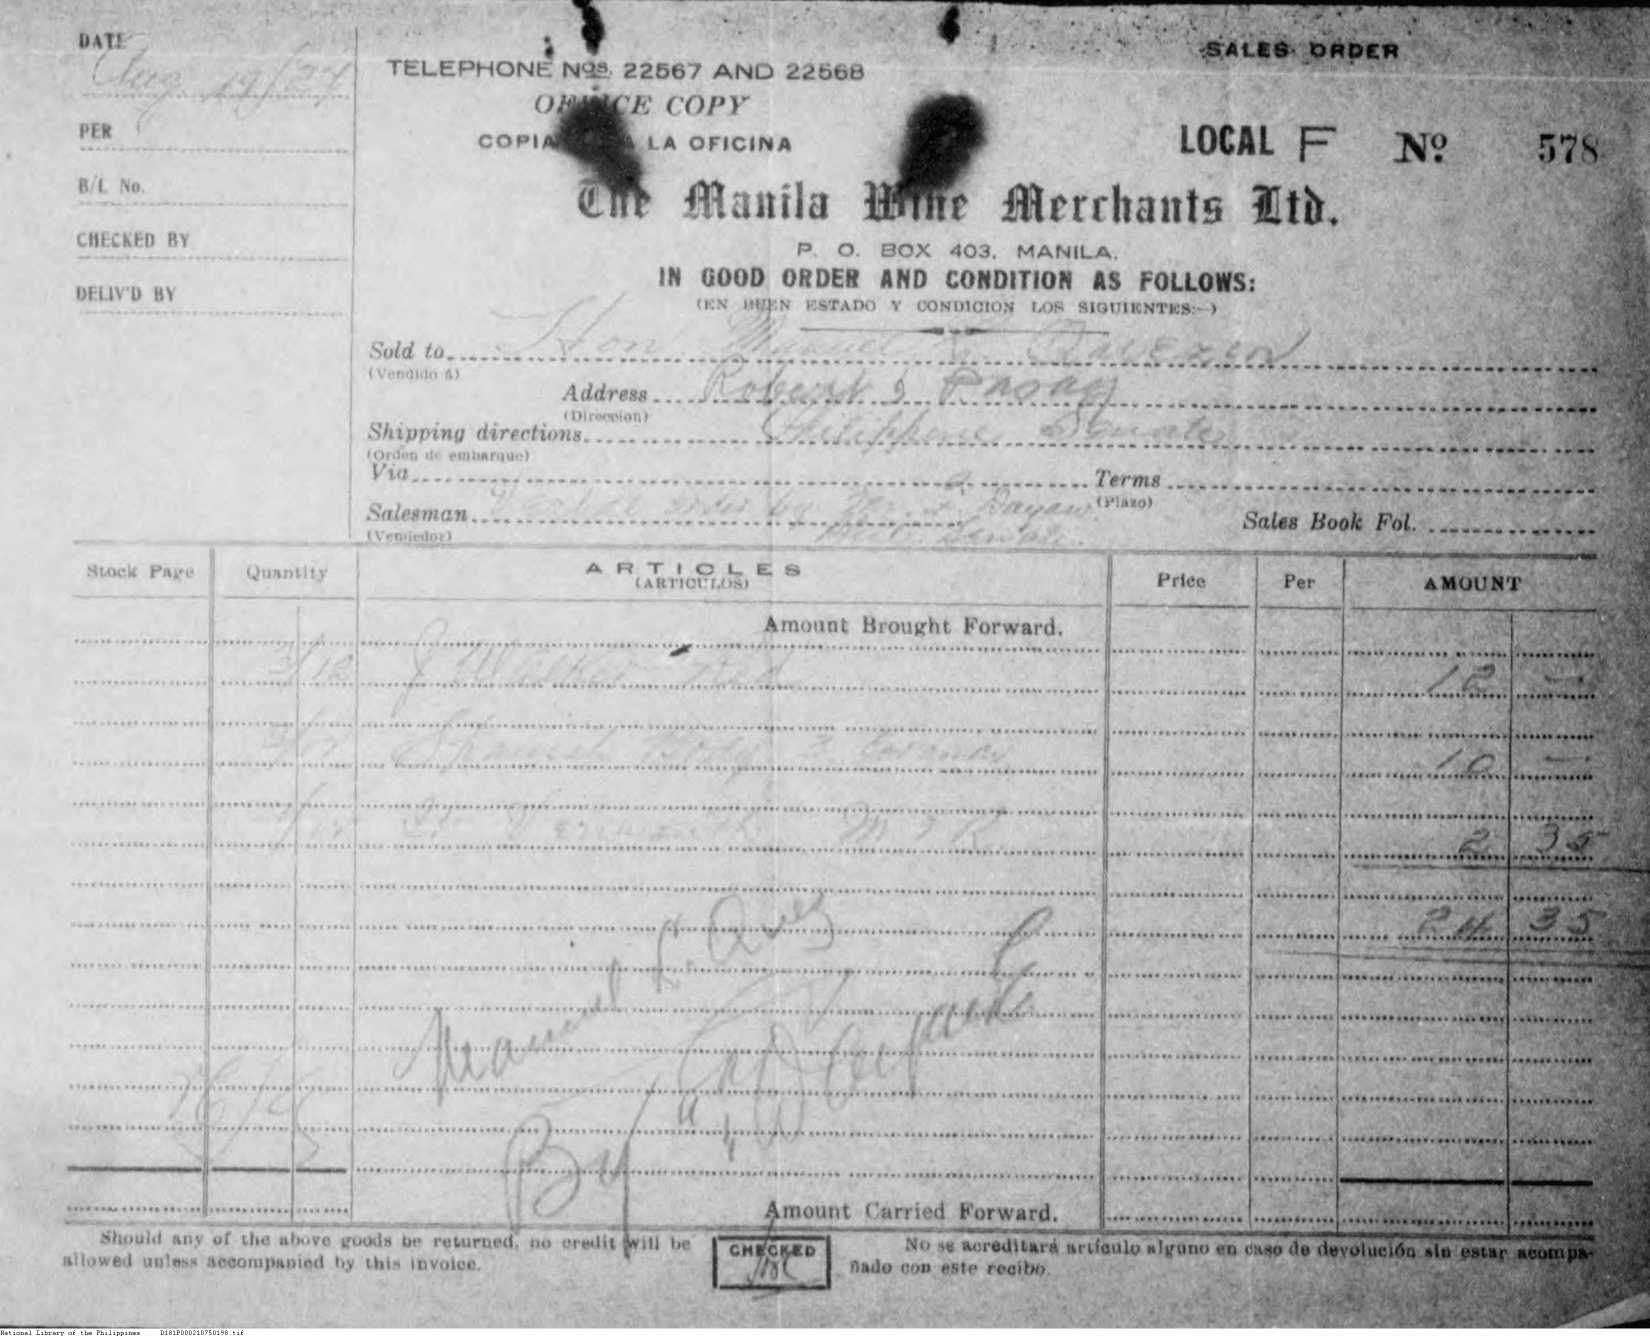 DATE
Aug 19/24
TELEPHONE Nos. 22567 AND 22568
SALES ORDER
OFFICE COPY
PER
COPIA LA OFICINA
LOCAL F No 578
B/L No.
The Manila Wine Merchants Ltd.
CHECKED BY
P. O. BOX 403, MANILA.
IN GOOD ORDER AND CONDITION AS FOLLOWS:
DELIV'D BY
(EN BUEN ESTADO Y CONDICION LOS SIGUIENTES:-)
Sold to Hon Manuel L. Quezon
(Vendido á)
Address Roberts Pasay
(Direccion)
Shipping directions Philippine Senate
(Orden de embarque)
Via
Terms
(Plazo)
Salesman order by
Sales Book Fol.
(Vendedor)
Stock Page Quantity ARTICLES Price Per AMOUNT
(ARTICULOS)
Amount Brought Forward.
/12 J Walker 12 —
Spanish 10 —
M & R 2 35
24 35
Manuel L. Quez
By
Amount Carried Forward.
Should any of the above goods be returned, no credit will be
allowed unless accompanied by this invoice.
CHECKED
No se acreditará artículo alguno en caso de devolución sin estar acompa-
ñado con este recibo.
National Library of the Philippines D181P000210750198.tif